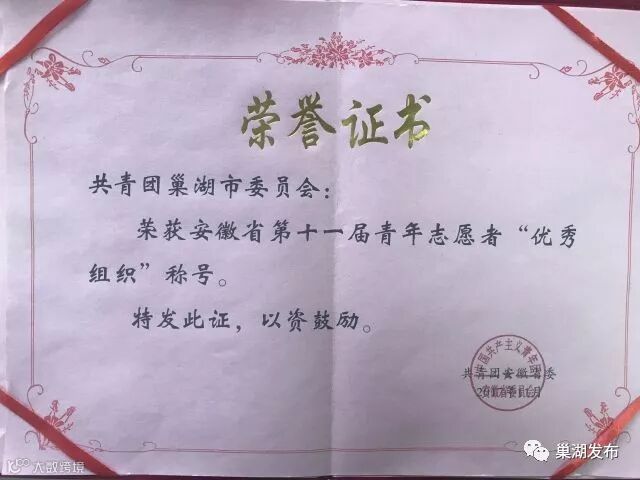 荣誉证书
共青团巢湖市委员会：
荣获安徽省第十一届青年志愿者“优秀
组织”称号。
特发此证，以资鼓励。
共青团安徽省委
巢湖发布
大数跨境